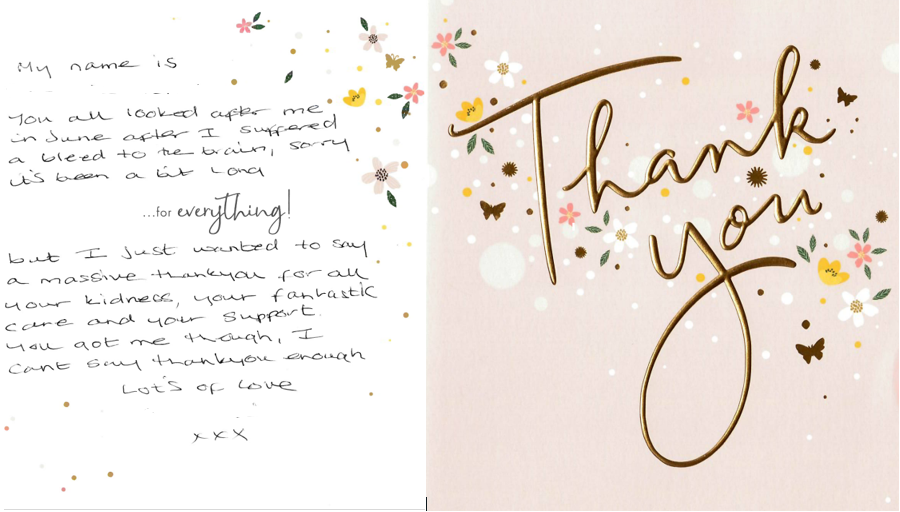 My name is
You all looked after me
in June after I suffered
a bleed to the brain, sorry
it's been a bit long
...for everything!
but I just wanted to say
a massive thankyou for all
your kidness, your fantastic
care and your support.
You got me though, I
cant say thankyou enough
Lot's of love
xxx
Thank
you